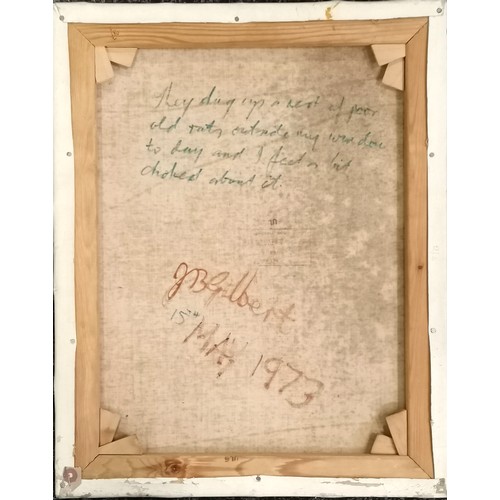 They dug up a nest of poor
old rats outside my window
to day and I feel a bit
choked about it.
JB Gilbert
15th MAY 1973